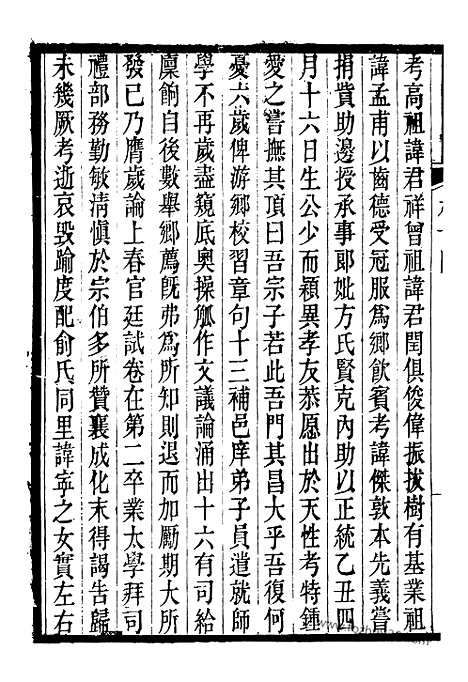 考高祖諱君祥曾祖諱君閏俱俊偉振拔樹有基業祖
諱孟甫以齒德受冠服爲鄉飲賓考諱傑敦本先義嘗
捐貲助邊授承事郞妣方氏賢克內助以正統乙丑四
月十六日生公少而穎異孝友恭愿出於天性考特鍾
愛之嘗撫其頂曰吾宗子若此吾門其昌大乎吾復何
憂六歲俾游鄉校習章句十三補邑庠弟子員遣就師
學不再歲盡窺底奥操觚作文議論涌出十六有司給
廩餉自後數舉鄉薦旣弗爲所知則退而加勵期大所
發已乃膺歲論上春官廷試卷在第二卒業太學拜司
禮部務勤敏淸愼於宗伯多所贊襄成化末得謁告歸
未幾厥考逝哀毀踰度配俞氏同里諱寧之女實左右